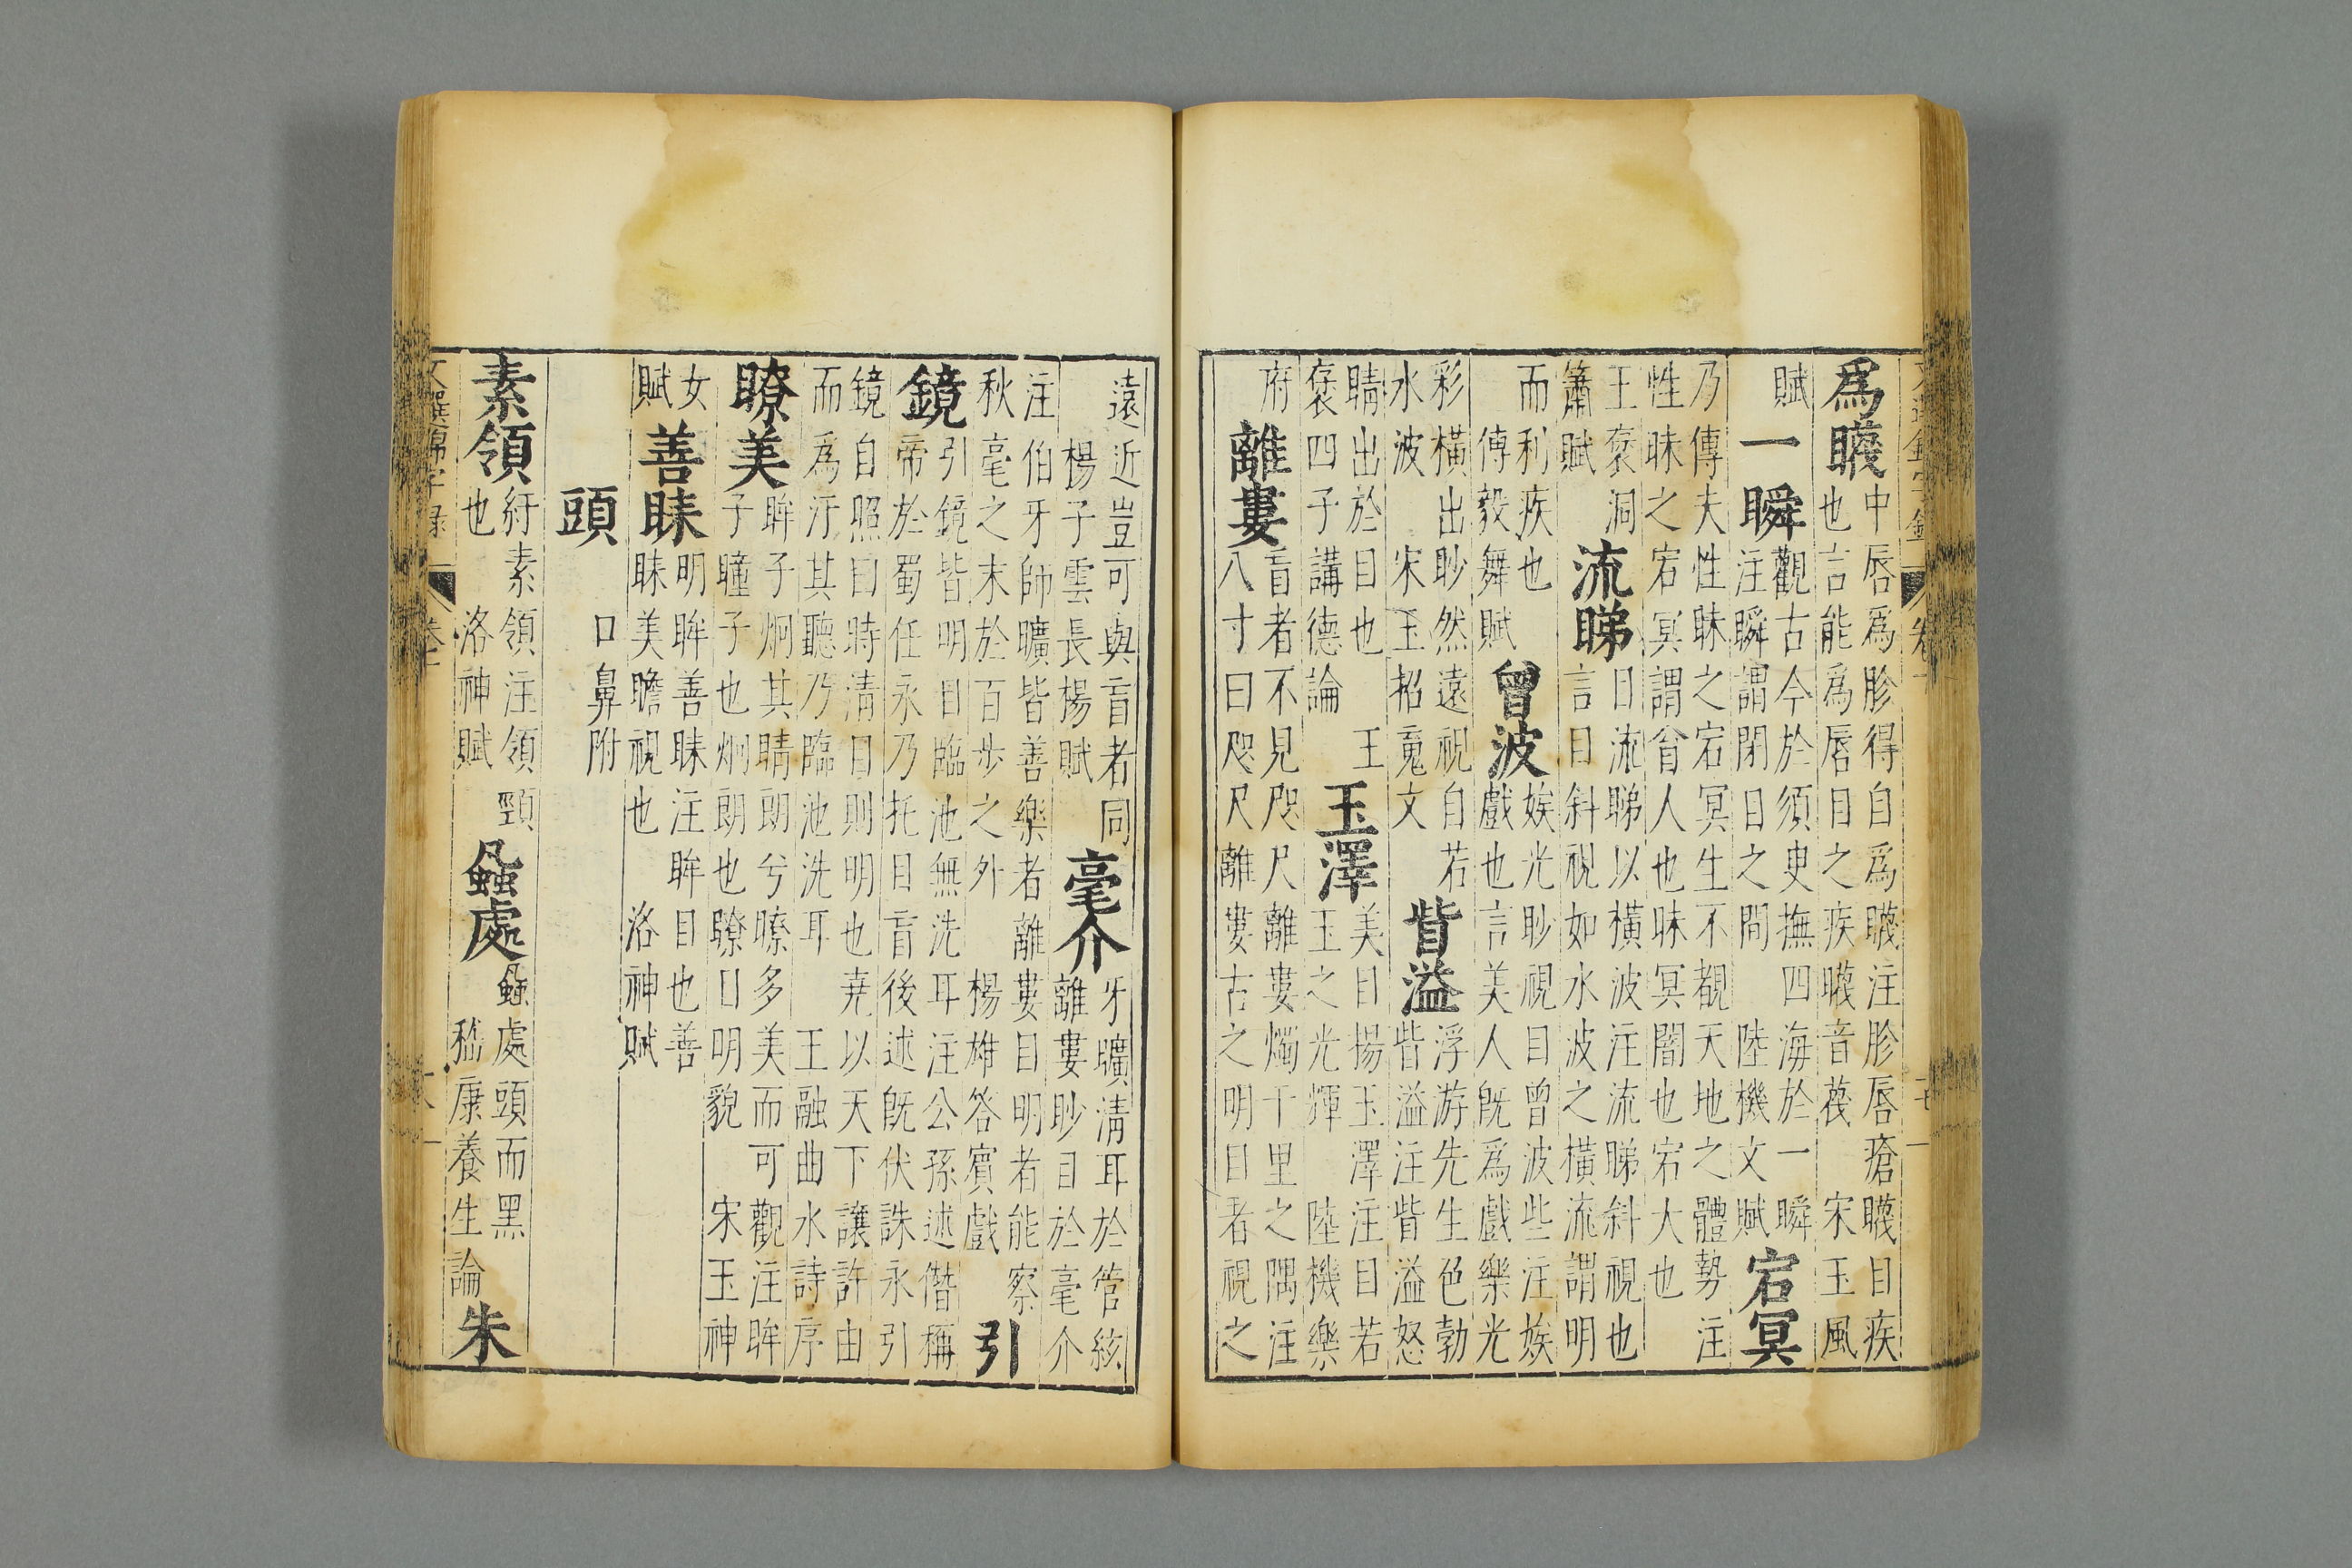 爲䁾中唇爲胗得自爲䁾注胗唇瘡䁾目疾也言能爲唇目之疾䁾音蔑 宋玉風
賦 一瞬觀古今於須臾撫四海於一瞬注瞬謂閉日之間 陸機文賦 宕冥
乃傳夫性昧之宕冥生不覩天地之體勢注性昧之宕冥謂人也昧冥闇也宕大也
王褒洞簫賦 流睇日流睇以橫波注流睇斜視也言日斜視如水波之橫流謂明
而利疾也傅毅舞賦 曾波娭光眇視目曾波些注娭戲也言美人旣爲戲樂光
彩橫出眇然遠視自若水波 宋玉招䰟文 眥溢浮游先生色勃眥溢注眥溢怒
睛出於目也 王褒四子講德論 玉澤美目揚玉澤注目若玉之光輝 陸機樂
府 離婁盲者不見咫尺離婁燭千里之隅注八寸曰咫尺離婁古之明目者視之
遠近豈可與盲者同楊子雲長楊賦 毫介牙曠清耳於管絃離婁眇目於毫介
注伯牙師曠皆善樂者離婁目明者能察秋毫之末於百步之外 楊雄答賓戲 引
鏡引鏡皆明目臨池無洗耳注公孫述僭稱帝於蜀任永乃托目盲後述旣伏誅永引
鏡自照曰時清目則明也堯以天下讓許由而爲汙其聽乃臨池洗耳 王融曲水詩序
瞭美眸子炯其睛朗兮瞭多美而可觀注眸子瞳子也炯朗也瞭目明貌 宋玉神
女賦 善睞明眸善睞注眸目也善睞美瞻視也 洛神賦
頭 口鼻附
素領紆素領注領頸也 洛神賦 蝨處蝨處頭而黑 嵇康養生論 朱
文選錦字錄